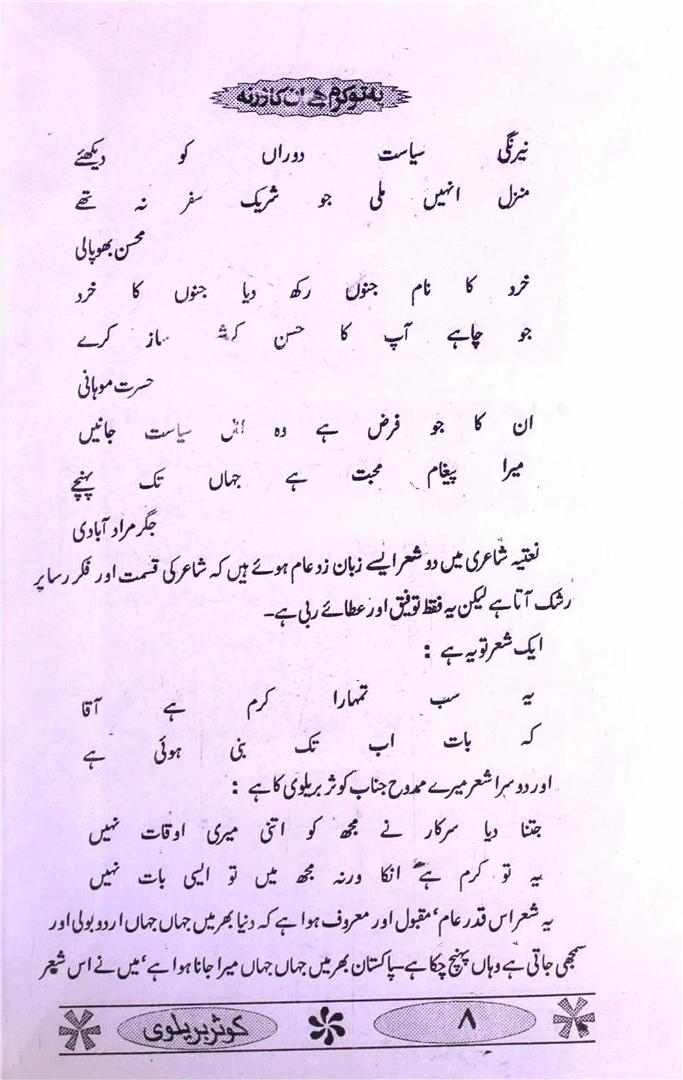 یہ تو کرم ہے ان کا ورنہ
نیرنگی سیاست دوراں کو دیکھئے
منزل انہیں ملی جو شریک سفر نہ تھے
محسن بھوپالی
خرد کا نام جنوں رکھ دیا جنوں کا خرد
جو چاہے آپ کا حسن کرشمہ ساز کرے
حسرت موہانی
ان کا جو فرض ہے وہ اہل سیاست جانیں
میرا پیغام محبت ہے جہاں تک پہنچے
جگر مراد آبادی
نعتیہ شاعری میں دو شعر ایسے زبان زد عام ہوئے ہیں کہ شاعر کی قسمت اور فکر رسا پر
رشک آتا ہے لیکن یہ فقط توفیق اور عطائے ربی ہے۔
ایک شعر تو یہ ہے :
یہ سب تمہارا کرم ہے آقا
کہ بات اب تک بنی ہوئی ہے
اور دوسرا شعر میرے ممدوح جناب کوثر بریلوی کا ہے :
جتنا دیا سرکار نے مجھ کو اتنی میری اوقات نہیں
یہ تو کرم ہے انکا ورنہ مجھ میں تو ایسی بات نہیں
یہ شعر اس قدر عام، مقبول اور معروف ہوا ہے کہ دنیا بھر میں جہاں جہاں اردو بولی اور
سمجھی جاتی ہے وہاں پہنچ چکا ہے۔ پاکستان بھر میں جہاں جہاں میرا جانا ہوا ہے، میں نے اس شعر
۸
کوثر بریلوی